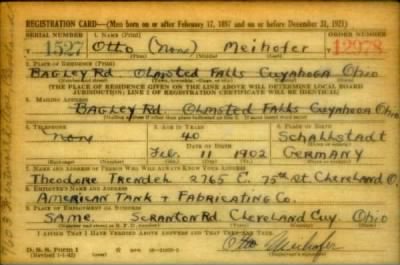 REGISTRATION CARD—(Men born on or after February 17, 1897 and on or before December 31, 1921)
SERIAL NUMBER 1. NAME (Print) ORDER NUMBER
1527 Otto (none) Meihofer 12978
(First) (Middle) (Last)
2. PLACE OF RESIDENCE (Print)
BAGLEY Rd Olmsted Falls Cuyahoga Ohio
(Number and street) (Town, township, village, or city) (County) (State)
[THE PLACE OF RESIDENCE GIVEN ON THE LINE ABOVE WILL DETERMINE LOCAL BOARD
JURISDICTION; LINE 2 OF REGISTRATION CERTIFICATE WILL BE IDENTICAL]
3. MAILING ADDRESS
BAGLEY Rd. Olmsted Falls Cuyahoga Ohio
[Mailing address if other than place indicated on line 2. If same insert word same]
4. TELEPHONE 5. AGE IN YEARS 6. PLACE OF BIRTH
none 40 Schallstadt
DATE OF BIRTH
Feb. 11 1902 GERMANY
(Exchange) (Number) (Mo.) (Day) (Yr.) (State or country)
7. NAME AND ADDRESS OF PERSON WHO WILL ALWAYS KNOW YOUR ADDRESS
Theodore Trendel 2765 E. 75th St. Cleveland O.
8. EMPLOYER'S NAME AND ADDRESS
AMERICAN TANK + FABRICATING Co.
9. PLACE OF EMPLOYMENT OR BUSINESS
SAME. SCRANTON Rd Cleveland Cuy. Ohio
(Number and street or R. F. D. number) (Town) (County) (State)
I AFFIRM THAT I HAVE VERIFIED ABOVE ANSWERS AND THAT THEY ARE TRUE.
D. S. S. Form 1
(Revised 1-1-42) (over) Otto Meihofer